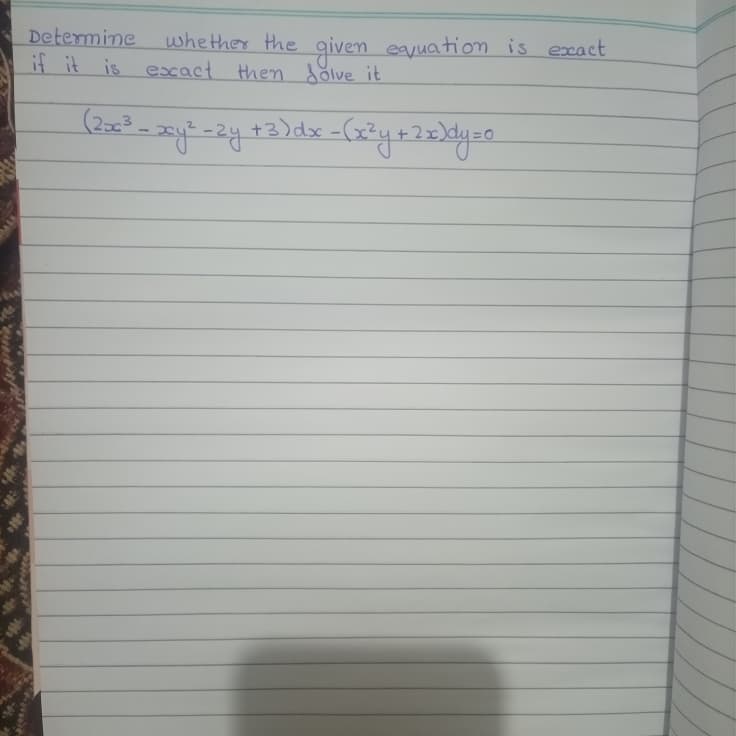 Determine whether the given equation is exact
if it is exact then solve it
(2x³ - xy² - 2y + 3)dx - (x²y + 2x)dy = 0